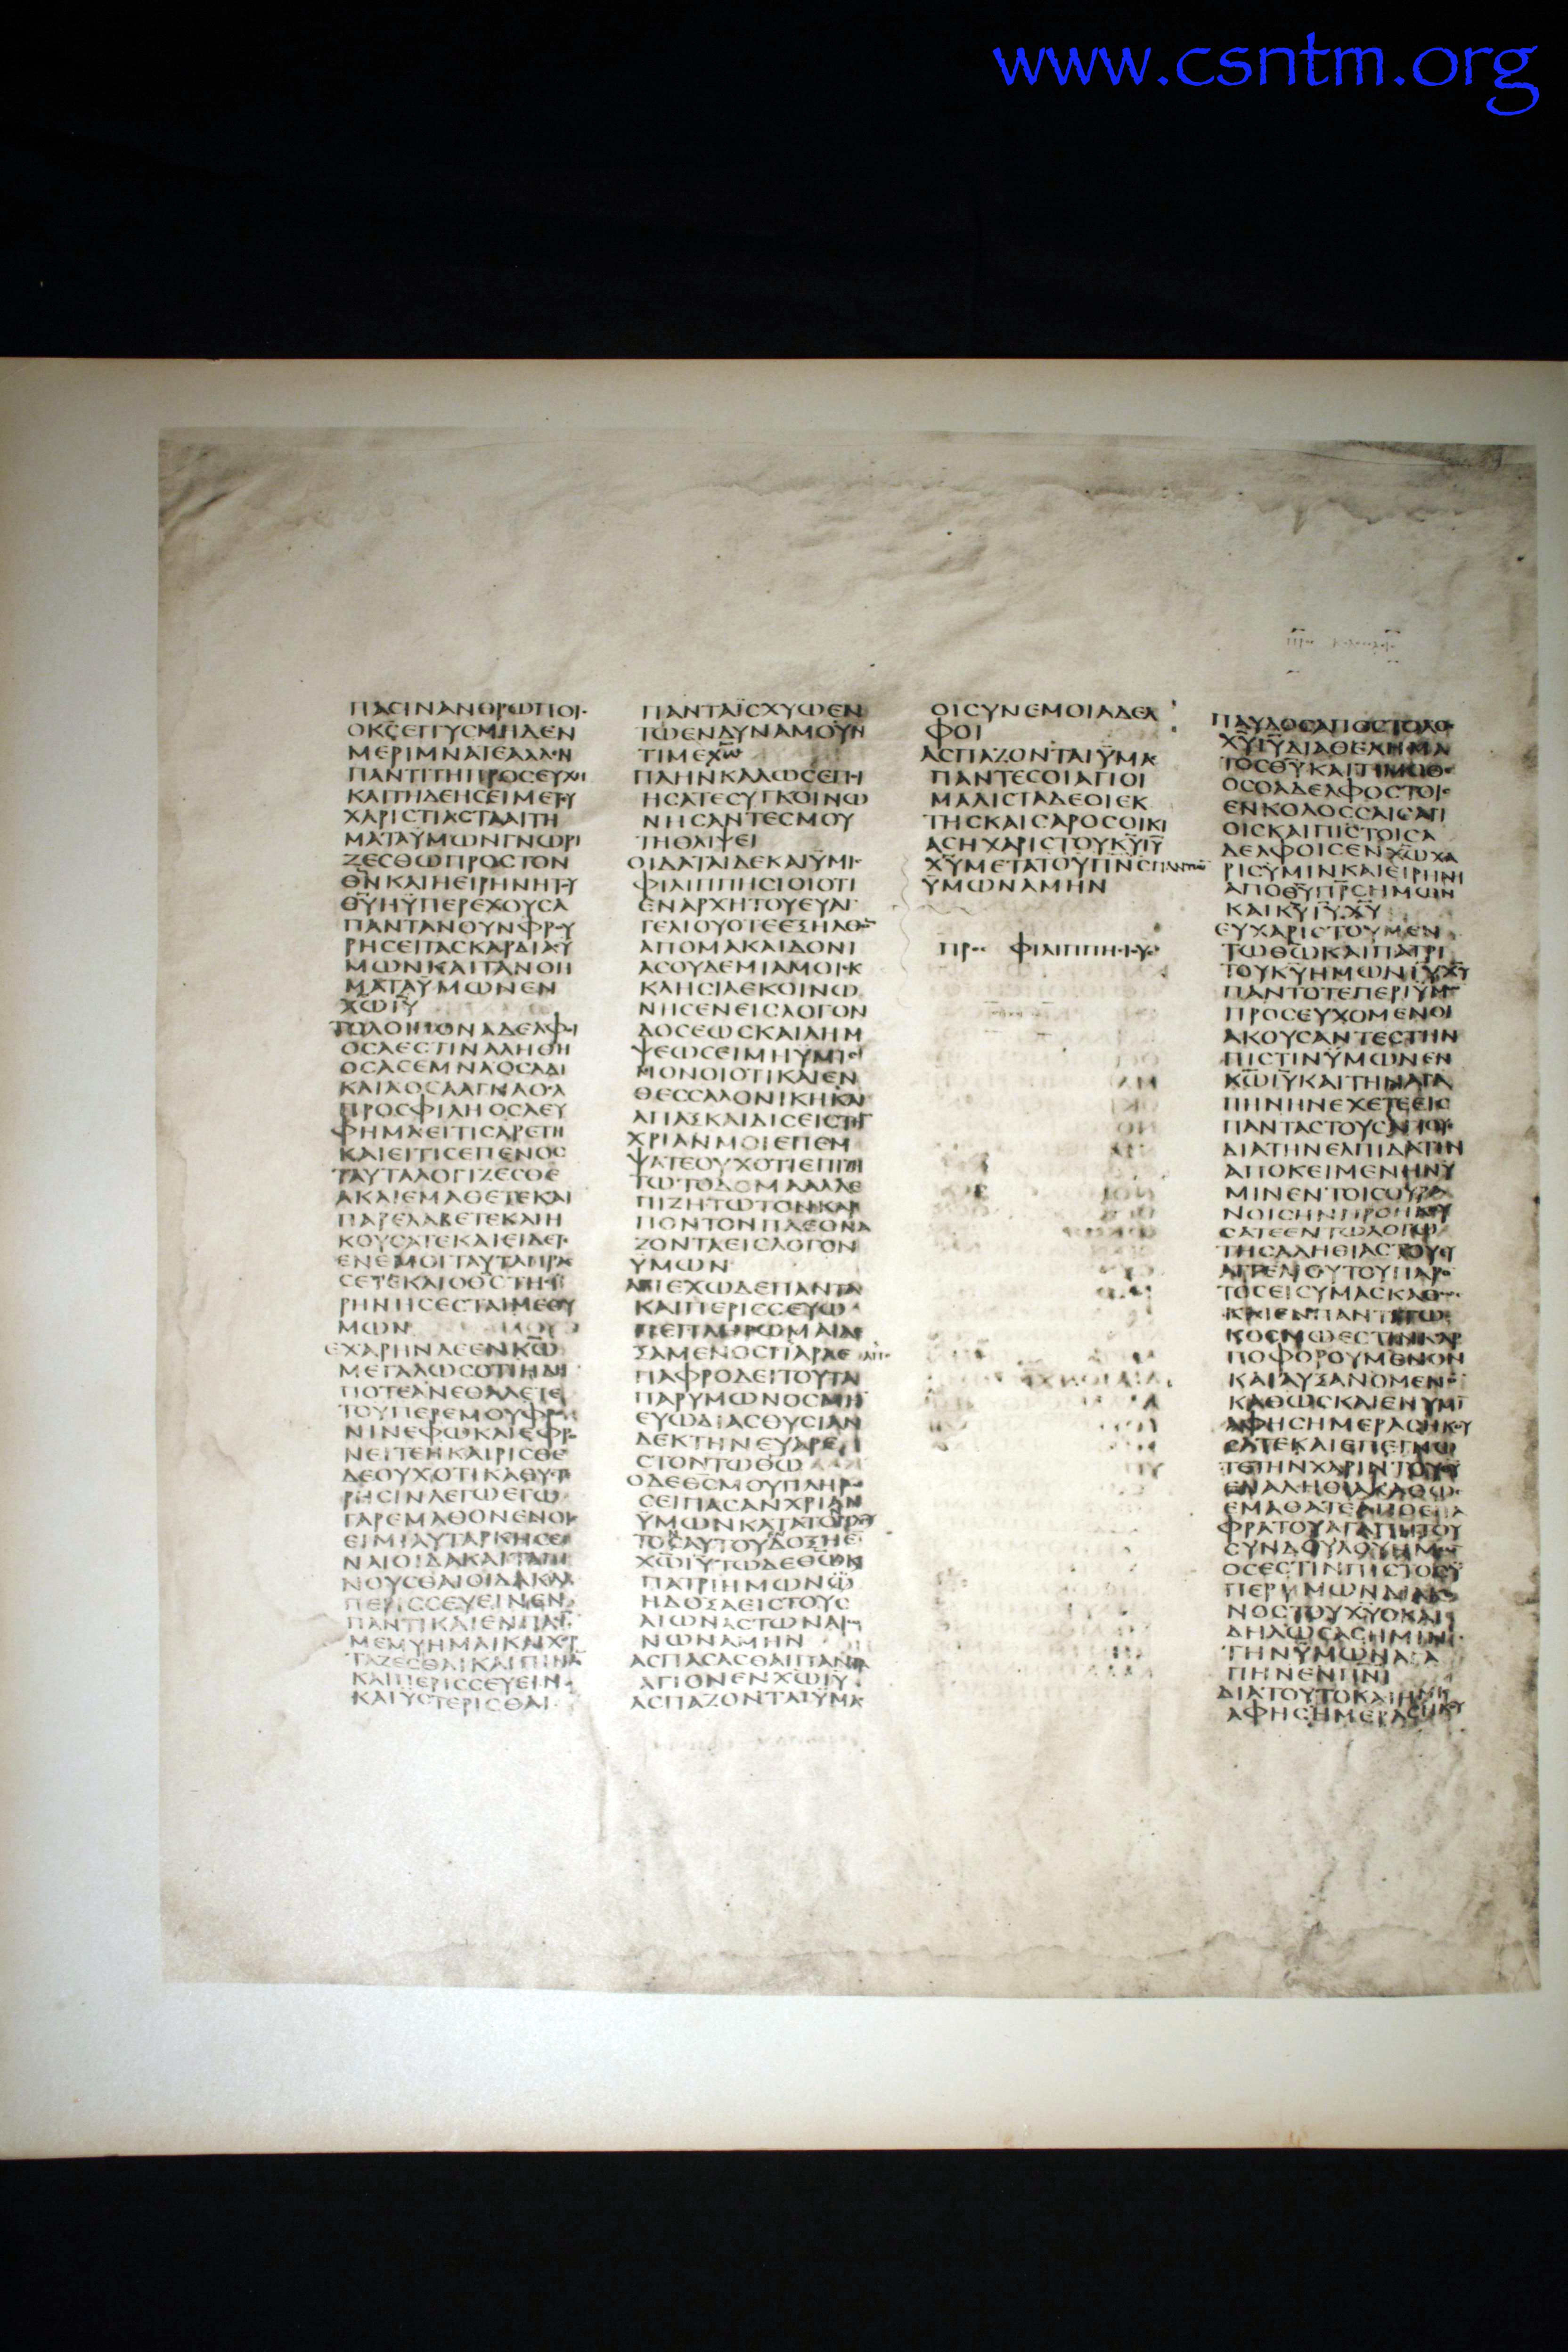 www.csntm.org
ΠΑCΙΝΑΝΘΡΩΠΟΙ
ΟΚCΕΓΓΥCΜΗΔΕΝ
ΜΕΡΙΜΝΑΤΕΑΛΛΕΝ
ΠΑΝΤΙΤΗΠΡΟCΕΥΧΗ
ΚΑΙΤΗΔΕΗCΕΙΜΕΤΕΥ
ΧΑΡΙCΤΙΑCΤΑΑΙΤΗ
ΜΑΤΑΥΜΩΝΓΝΩΡΙ
ΖΕCΘΩΠΡΟCΤΟΝ
ΘΝΚΑΙΗΕΙΡΗΝΗΤΥ
ΘΥΗΫΠΕΡΕΧΟΥCΑ
ΠΑΝΤΑΝΟΥΝΦΡΥ
ΡΗCΕΙΤΑCΚΑΡΔΙΑΥ
ΜΩΝΚΑΙΤΑΝΟΗ
ΜΑΤΑΥΜΩΝΕΝ
ΧΩΙΥ
ΤΟΛΟΙΠΟΝΑΔΕΛΦΙ
ΟCΑΕCΤΙΝΑΛΗΘΗ
ΟCΑCΕΜΝΑΟCΑΔΙ
ΚΑΙΑΟCΑΑΓΝΑΟCΑ
ΠΡΟCΦΙΛΗΟCΑΕΥ
ΦΗΜΑΕΙΤΙCΑΡΕΤΗ
ΚΑΙΕΙΤΙCΕΠΕΝΟC
ΤΑΥΤΑΛΟΓΙΖΕCΘΕ
ΑΚΑΙΕΜΑΘΕΤΕΚΑΙ
ΠΑΡΕΛΑΒΕΤΕΚΑΙΗ
ΚΟΥCΑΤΕΚΑΙΕΙΔΕΤ
ΕΝΕΜΟΙΤΑΥΤΑΠΡΑ
CΕΤΕΚΑΙΟΘCΤΗCΙ
ΡΗΝΗCΕCΤΑΙΜΕΘΥ
ΜΩΝ
ΕΧΑΡΗΝΔΕΕΝΚΩ
ΜΕΓΑΛΩCΟΤΙΗΔΗ
ΠΟΤΕΑΝΕΘΑΛΕΤΕ
ΤΟΥΠΕΡΕΜΟΥΦΡ
ΝΙΝΕΦΩΚΑΙΕΦΡ
ΝΕΙΤΕΗΚΑΙΡΙCΘΕ
ΔΕΟΥΧΟΤΙΚΑΘΥΤΕ
ΡΗCΙΝΛΕΓΩΕΓΩ
ΓΑΡΕΜΑΘΟΝΕΝΟΙ
ΕΙΜΙΑΥΤΑΡΚΗCΕΙ
ΝΑΙΟΙΔΑΚΑΙΤΑΠΙ
ΝΟΥCΘΑΙΟΙΔΑΚΑΙ
ΠΕΡΙCCΕΥΕΙΝΕΝ
ΠΑΝΤΙΚΑΙΕΝΠΑCΙ
ΜΕΜΥΗΜΑΙΚΑΙΧΟΡ
ΤΑΖΕCΘΑΙΚΑΙΠΙΝΑ
ΚΑΙΠΕΡΙCCΕΥΕΙΝ
ΚΑΙΫCΤΕΡΙCΘΑΙ
ΠΑΝΤΑΪCΧΥΩΕΝ
ΤΩΕΝΔΥΝΑΜΟΥΝ
ΤΙΜΕΧΩ
ΠΛΗΝΚΑΛΩCΕΠΗ
ΗCΑΤΕCΥΓΚΟΙΝΩ
ΝΗCΑΝΤΕCΜΟΥ
ΤΗΘΛΙΨΕΙ
ΟΙΔΑΤΑΙΔΕΚΑΙΫΜΙ
ΦΙΛΙΠΠΗCΙΟΙΟΤΙ
ΕΝΑΡΧΗΤΟΥΕΥΑΓ
ΓΕΛΙΟΥΟΤΕΕΞΗΛΘ
ΑΠΟΜΑΚΑΙΔΟΝΙ
ΑCΟΥΔΕΜΙΑΜΟΙΕΚ
ΚΛΗCΙΑΕΚΟΙΝΩ
ΝΗCΕΝΕΙCΛΟΓΟΝ
ΔΟCΕΩCΚΑΙΛΗΜ
ΨΕΩCΕΙΜΗΥΜΙC
ΜΟΝΟΙΟΤΙΚΑΙΕΝ
ΘΕCCΑΛΟΝΙΚΗΚΑΙ
ΑΠΑΞΚΑΙΔΙCΕΙCΤΗΝ
ΧΡΙΑΝΜΟΙΕΠΕΜ
ΨΑΤΕΟΥΧΟΤΙΕΠΙΖΗ
ΤΩΤΟΔΟΜΑΑΛΛΕ
ΠΙΖΗΤΩΤΟΝΚΑΡ
ΠΟΝΤΟΝΠΛΕΟΝΑ
ΖΟΝΤΑΕΙCΛΟΓΟΝ
ΥΜΩΝ
ΑΠΕΧΩΔΕΠΑΝΤΑ
ΚΑΙΠΕΡΙCCΕΥΩ
ΠΕΠΛΗΡΩΜΑΙΔΕ
ΞΑΜΕΝΟCΠΑΡΑΕ
ΠΑΦΡΟΔΕΙΤΟΥΤΑ
ΠΑΡΥΜΩΝΟCΜΗ
ΕΥΩΔΙΑCΘΥCΙΑΝ
ΔΕΚΤΗΝΕΥΑΡΕ
CΤΟΝΤΩΘΩ
ΟΔΕΘCΜΟΥΠΛΗΡ
CΕΙΠΑCΑΝΧΡΙΑΝ
ΫΜΩΝΚΑΤΑΤΟ
ΤΟCΑΥΤΟΥΔΟΞΗΕ
ΧΩΙΥΤΩΔΕΘΩΚ
ΠΑΤΡΙΗΜΩΝΩ
ΗΔΟΞΑΕΙCΤΟΥC
ΑΙΩΝΑCΤΩΝΑΙ
ΝΩΝΑΜΗΝ
ΑCΠΑCΑCΘΑΙΠΑΝΤΑ
ΑΓΙΟΝΕΝΧΩΙΥ
ΑCΠΑΖΟΝΤΑΙΫΜΑ
ΟΙCΥΝΕΜΟΙΑΔΕΛ
ΦΟΙ
ΑCΠΑΖΟΝΤΑΙΫΜΑ
ΠΑΝΤΕCΟΙΑΓΙΟΙ
ΜΑΛΙCΤΑΔΕΟΙΕΚ
ΤΗCΚΑΙCΑΡΟCΟΙΚΙ
ΑCΗΧΑΡΙCΤΟΥΚΥΙΥ
ΧΥΜΕΤΑΤΟΥΠΝC
ΫΜΩΝΑΜΗΝ
ΠΡ ΦΙΛΙΠΠΗ
ΠΑΥΛΟCΑΠΟCΤΟΛΟ
ΧΥΙΥΔΙΑΘΕΛΗΜΑ
ΤΟCΘΥΚΑΙΤΙΜΟΘ
ΟCΟΑΔΕΛΦΟCΤΟΙ
ΕΝΚΟΛΟCCΑΙCΑΓΙ
ΟΙCΚΑΙΠΙCΤΟΙCΑ
ΔΕΛΦΟΙCΕΝΧΩΧΑ
ΡΙCΥΜΙΝΚΑΙΕΙΡΗΝΗ
ΑΠΟΘΥΠΡCΗΜΩΝ
ΚΑΙΚΥΙΥΧΥ
ΕΥΧΑΡΙCΤΟΥΜΕΝ
ΤΩΘΩΚΑΙΠΑΤΡΙ
ΤΟΥΚΥΗΜΩΝΙΥΧΥ
ΠΑΝΤΟΤΕΠΕΡΙΫΜ
ΠΡΟCΕΥΧΟΜΕΝΟΙ
ΑΚΟΥCΑΝΤΕCΤΗΝ
ΠΙCΤΙΝΫΜΩΝΕΝ
ΧΩΙΥΚΑΙΤΗΝΑΓΑ
ΠΗΝΗΝΕΧΕΤΕΕΙC
ΠΑΝΤΑCΤΟΥCΑΓΙΟΥ
ΔΙΑΤΗΝΕΛΠΙΔΑΤΗΝ
ΑΠΟΚΕΙΜΕΝΗΝΥ
ΜΙΝΕΝΤΟΙCΟΥΡΑ
ΝΟΙCΗΝΠΡΟΗΚΟΥ
CΑΤΕΕΝΤΩΛΟΓΩ
ΤΗCΑΛΗΘΙΑCΤΟΥΕΥ
ΑΓΓΕΛΙΟΥΤΟΥΠΑΡ
ΤΟCΕΙCΥΜΑCΚΑΘ
ΚΑΙΕΝΠΑΝΤΙΤΩ
ΚΟCΜΩΕCΤΙΝΚΑΡ
ΠΟΦΟΡΟΥΜΕΝΟΝ
ΚΑΙΑΥΞΑΝΟΜΕΝ
ΚΑΘΩCΚΑΙΕΝΥΜΙ
ΑΦΗCΗΜΕΡΑCΗΚΥ
CΑΤΕΚΑΙΕΠΕΓΝΩ
ΤΕΤΗΝΧΑΡΙΝΤΟΥΘΥ
ΕΝΑΛΗΘΙΑΚΑΘΩ
ΕΜΑΘΑΤΕΑΠΟΕΠΑ
ΦΡΑΤΟΥΑΓΑΠΗΤΟΥ
CΥΝΔΟΥΛΟΥΗΜ
ΟCΕCΤΙΝΠΙCΤΟC
ΠΕΡΥΜΩΝΔΙΑΚΟ
ΝΟCΤΟΥΧΥΟΚΑΙ
ΔΗΛΩCΑCΗΜΙΝ
ΤΗΝΥΜΩΝΑΓΑ
ΠΗΝΕΝΠΝΙ
ΔΙΑΤΟΥΤΟΚΑΙΗΜΙ
ΑΦΗCΗΜΕΡΑCΗΚΥ